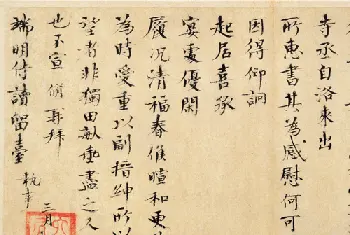 寺丞自洛來出
所惠書其為感慰何可
因得仰詢
起居喜承
宴處優閑
履況清福春候暄和更
為時愛重以副搢紳所以
望者非獨田畝垂盡之人
也不宣 脩再拜
端明侍讀留臺 執事 三月